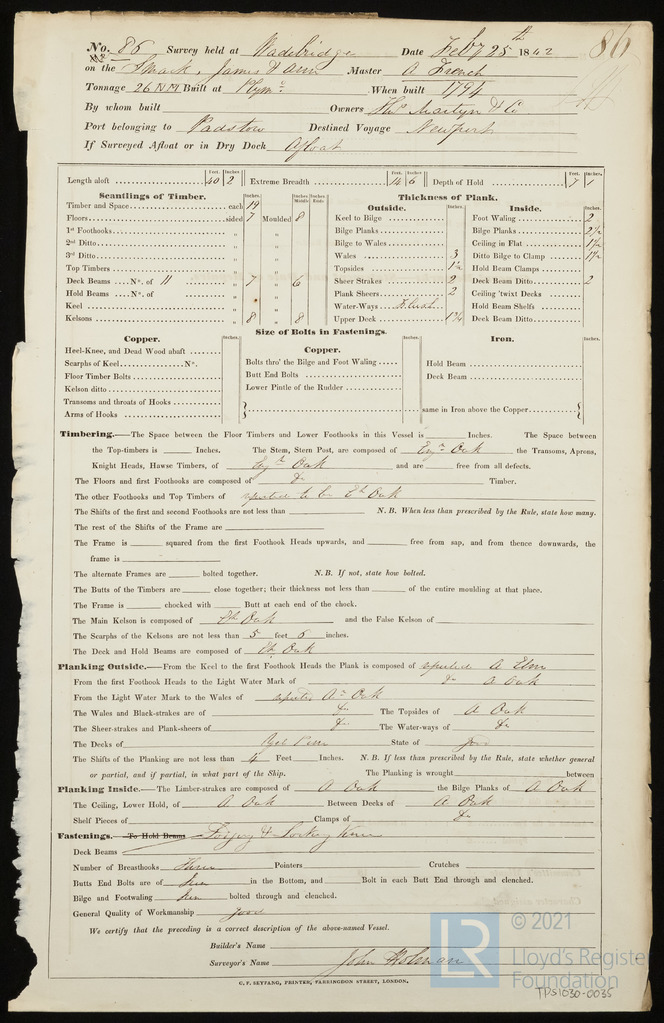 No. 86 Survey held at Wadebridge Date Feby 25th 1842 86
on the Smack, James & Ann Master A French
Tonnage 26 NM Built at Plymo When built 1794
By whom built Owners Thos Martyn & Co
Port belonging to Padstow Destined Voyage Newport
If Surveyed Afloat or in Dry Dock Afloat
Length aloft Feet. 40 Inches 2 Extreme Breadth Feet. 14 Inches 6 Depth of Hold Feet. 7 Inches. 1
Scantlings of Timber. Inches. Inches Middle Inches Ends
Timber and Space each 19
Floors sided 7 Moulded 8
1st Foothooks „ „
2nd Ditto „ „
3rd Ditto „ „
Top Timbers „ „
Deck Beams No. of 11 „ 7 „ 6
Hold Beams No. of „ „
Keel „ „
Kelsons „ 8 „ 8
Thickness of Plank.
Outside. Inches.
Keel to Bilge
Bilge Planks
Bilge to Wales
Wales 3
Topsides
Sheer Strakes 2
Plank Sheers 2
Water-Ways Flush
Upper Deck
Inside. Inches.
Foot Waling 2
Bilge Planks 2½
Ceiling in Flat 1½
Ditto Bilge to Clamp 1½
Hold Beam Clamps
Deck Beam Ditto 2
Ceiling 'twixt Decks
Hold Beam Shelfs
Deck Beam Ditto
Size of Bolts in Fastenings.
Copper. Inches.
Heel-Knee, and Dead Wood abaft
Scarphs of Keel No.
Floor Timber Bolts
Kelson ditto
Transoms and throats of Hooks
Arms of Hooks
Copper. Inches.
Bolts thro' the Bilge and Foot Waling
Butt End Bolts
Lower Pintle of the Rudder
Iron. Inches.
Hold Beam
Deck Beam
same in Iron above the Copper
Timbering.—The Space between the Floor Timbers and Lower Foothooks in this Vessel is Inches. The Space between
the Top-timbers is Inches. The Stem, Stern Post, are composed of Eng. Oak the Transoms, Aprons,
Knight Heads, Hawse Timbers, of Eng. Oak and are free from all defects.
The Floors and first Foothooks are composed of Do Timber.
The other Foothooks and Top Timbers of reported to be Eh Oak
The Shifts of the first and second Foothooks are not less than N.B. When less than prescribed by the Rule, state how many.
The rest of the Shifts of the Frame are
The Frame is squared from the first Foothook Heads upwards, and free from sap, and from thence downwards, the
frame is
The alternate Frames are bolted together. N.B. If not, state how bolted.
The Butts of the Timbers are close together; their thickness not less than of the entire moulding at that place.
The Frame is chocked with Butt at each end of the chock.
The Main Kelson is composed of Eh Oak and the False Kelson of
The Scarphs of the Kelsons are not less than 5 feet 6 inches.
The Deck and Hold Beams are composed of Eh Oak
Planking Outside.—From the Keel to the first Foothook Heads the Plank is composed of reported A Elm
From the first Foothook Heads to the Light Water Mark of do A Oak
From the Light Water Mark to the Wales of reported A Oak
The Wales and Black-strakes are of do The Topsides of A Oak
The Sheer-strakes and Plank-sheers of do The Water-ways of do
The Decks of Yel Pine State of good
The Shifts of the Planking are not less than 4 Feet Inches. N.B. If less than prescribed by the Rule, state whether general
or partial, and if partial, in what part of the Ship. The Planking is wrought between
Planking Inside.—The Limber-strakes are composed of A Oak the Bilge Planks of A Oak
The Ceiling, Lower Hold, of A Oak Between Decks of A Oak
Shelf Pieces of Clamps of do
Fastenings.—To Hold Beams
Deck Beams
Number of Breasthooks Three Pointers Crutches
Butts End Bolts are of Iron in the Bottom, and Bolt in each Butt End through and clenched.
Bilge and Footwaling Iron bolted through and clenched.
General Quality of Workmanship good
We certify that the preceding is a correct description of the above-named Vessel.
Builder's Name
Surveyor's Name John Holman
C. F. SEYFANG, PRINTER, FARRINGDON STREET, LONDON.
LR © 2021
Lloyd's Register
Foundation
TPS1030-0035